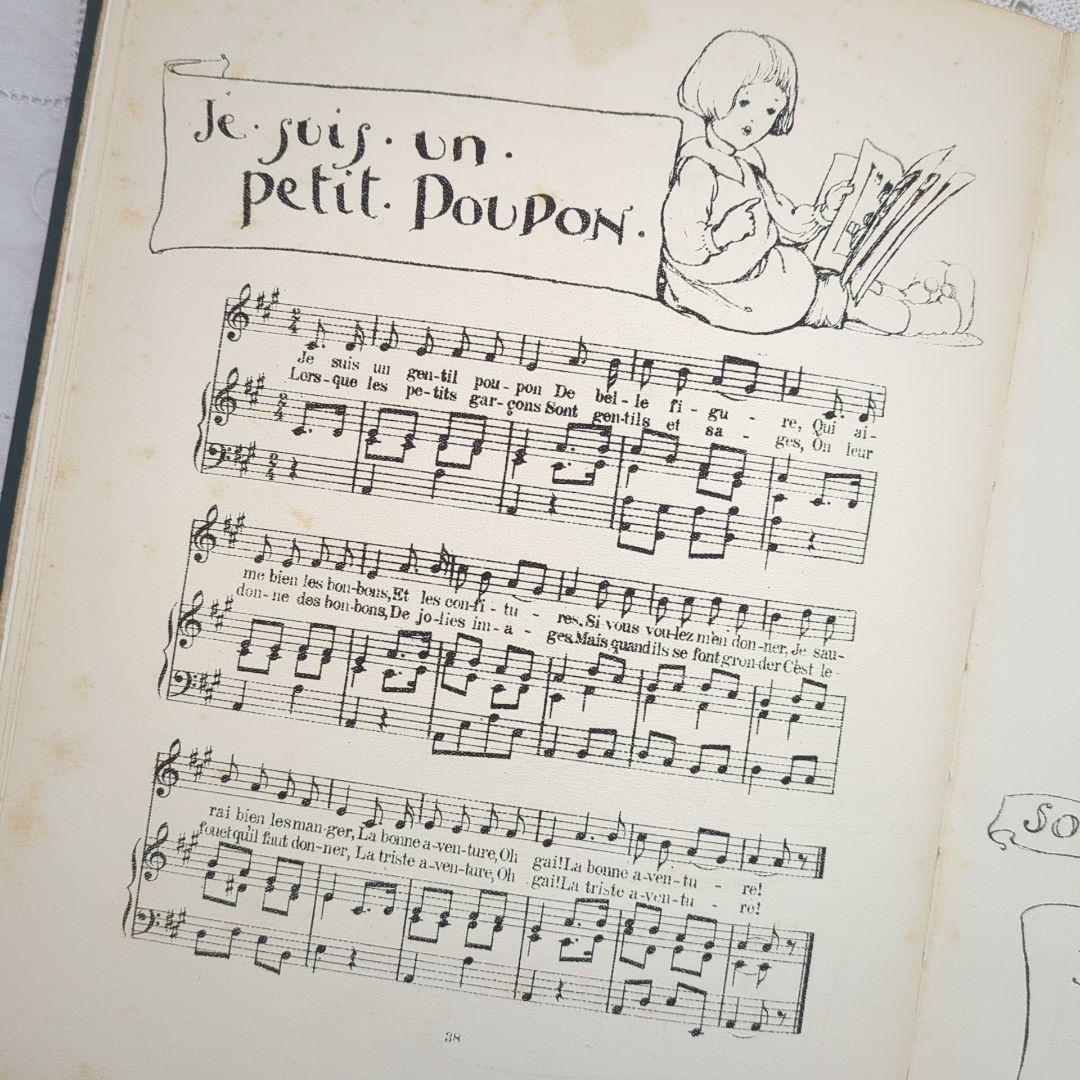 Je · suis · un ·
petit · Poupon ·
Je suis un gen-til pou-pon De bel-le fi-gu-re, Qui ai-
Lors-que les pe-tits gar-çons Sont gen-tils et sa-ges, On leur
me bien les bon-bons, Et les con-fi-tu-res. Si vous vou-lez m'en don-ner, Je sau-
don-ne des bon-bons, De jo-lies im-a-ges. Mais quand ils se font gron-der C'est le
rai bien les man-ger, La bonne a-ven-ture, Oh gai! La bonne a-ven-tu-re!
fouet qu'il faut don-ner, La triste a-ven-ture, Oh gai! La triste a-ven-tu-re!
38
SO